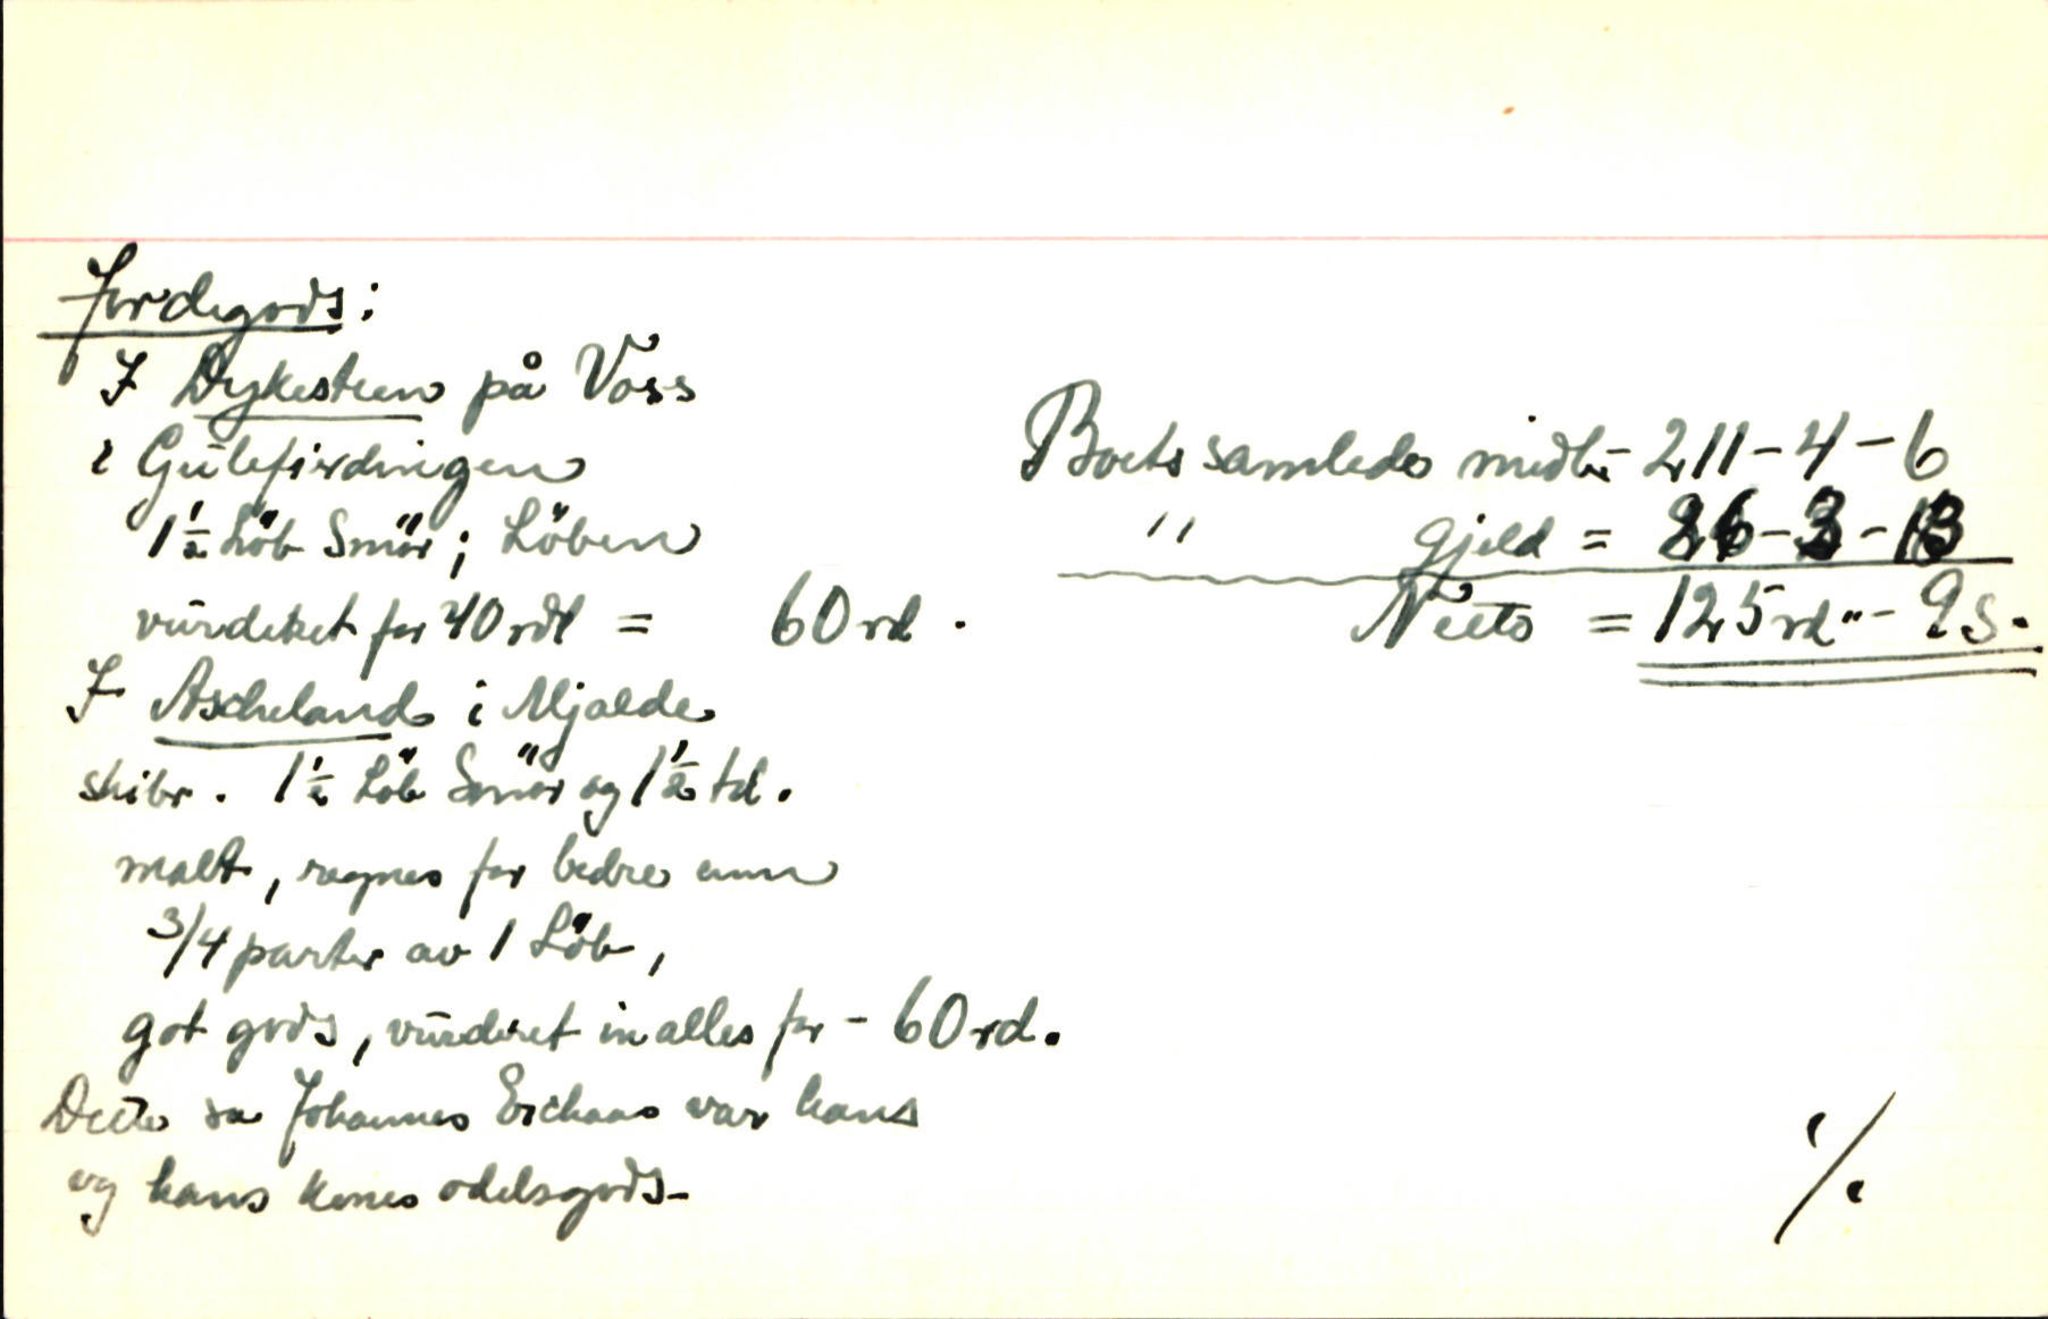 Jordegods:
I Dykesteen på Voss
i Gulefierdingen
1 1/2 Löb Smör; Löben
vurderet for 40 rdl = 60 rd.
I Ascheland i Mjaelde
skibr. 1 1/2 Löb Smör og 1 1/2 td.
malt, regnes for bedre enn
3/4 parter av 1 Löb,
got gods, vurderet in alles for - 60 rd.
Dette sa Johannes Erichaas var hans
og hans kones odelsgods-
Boets samlede midler - 211 - 4 - 6
" gjeld = 86 - 3 - 13
Netto = 125 rd " - 9 s.
./.